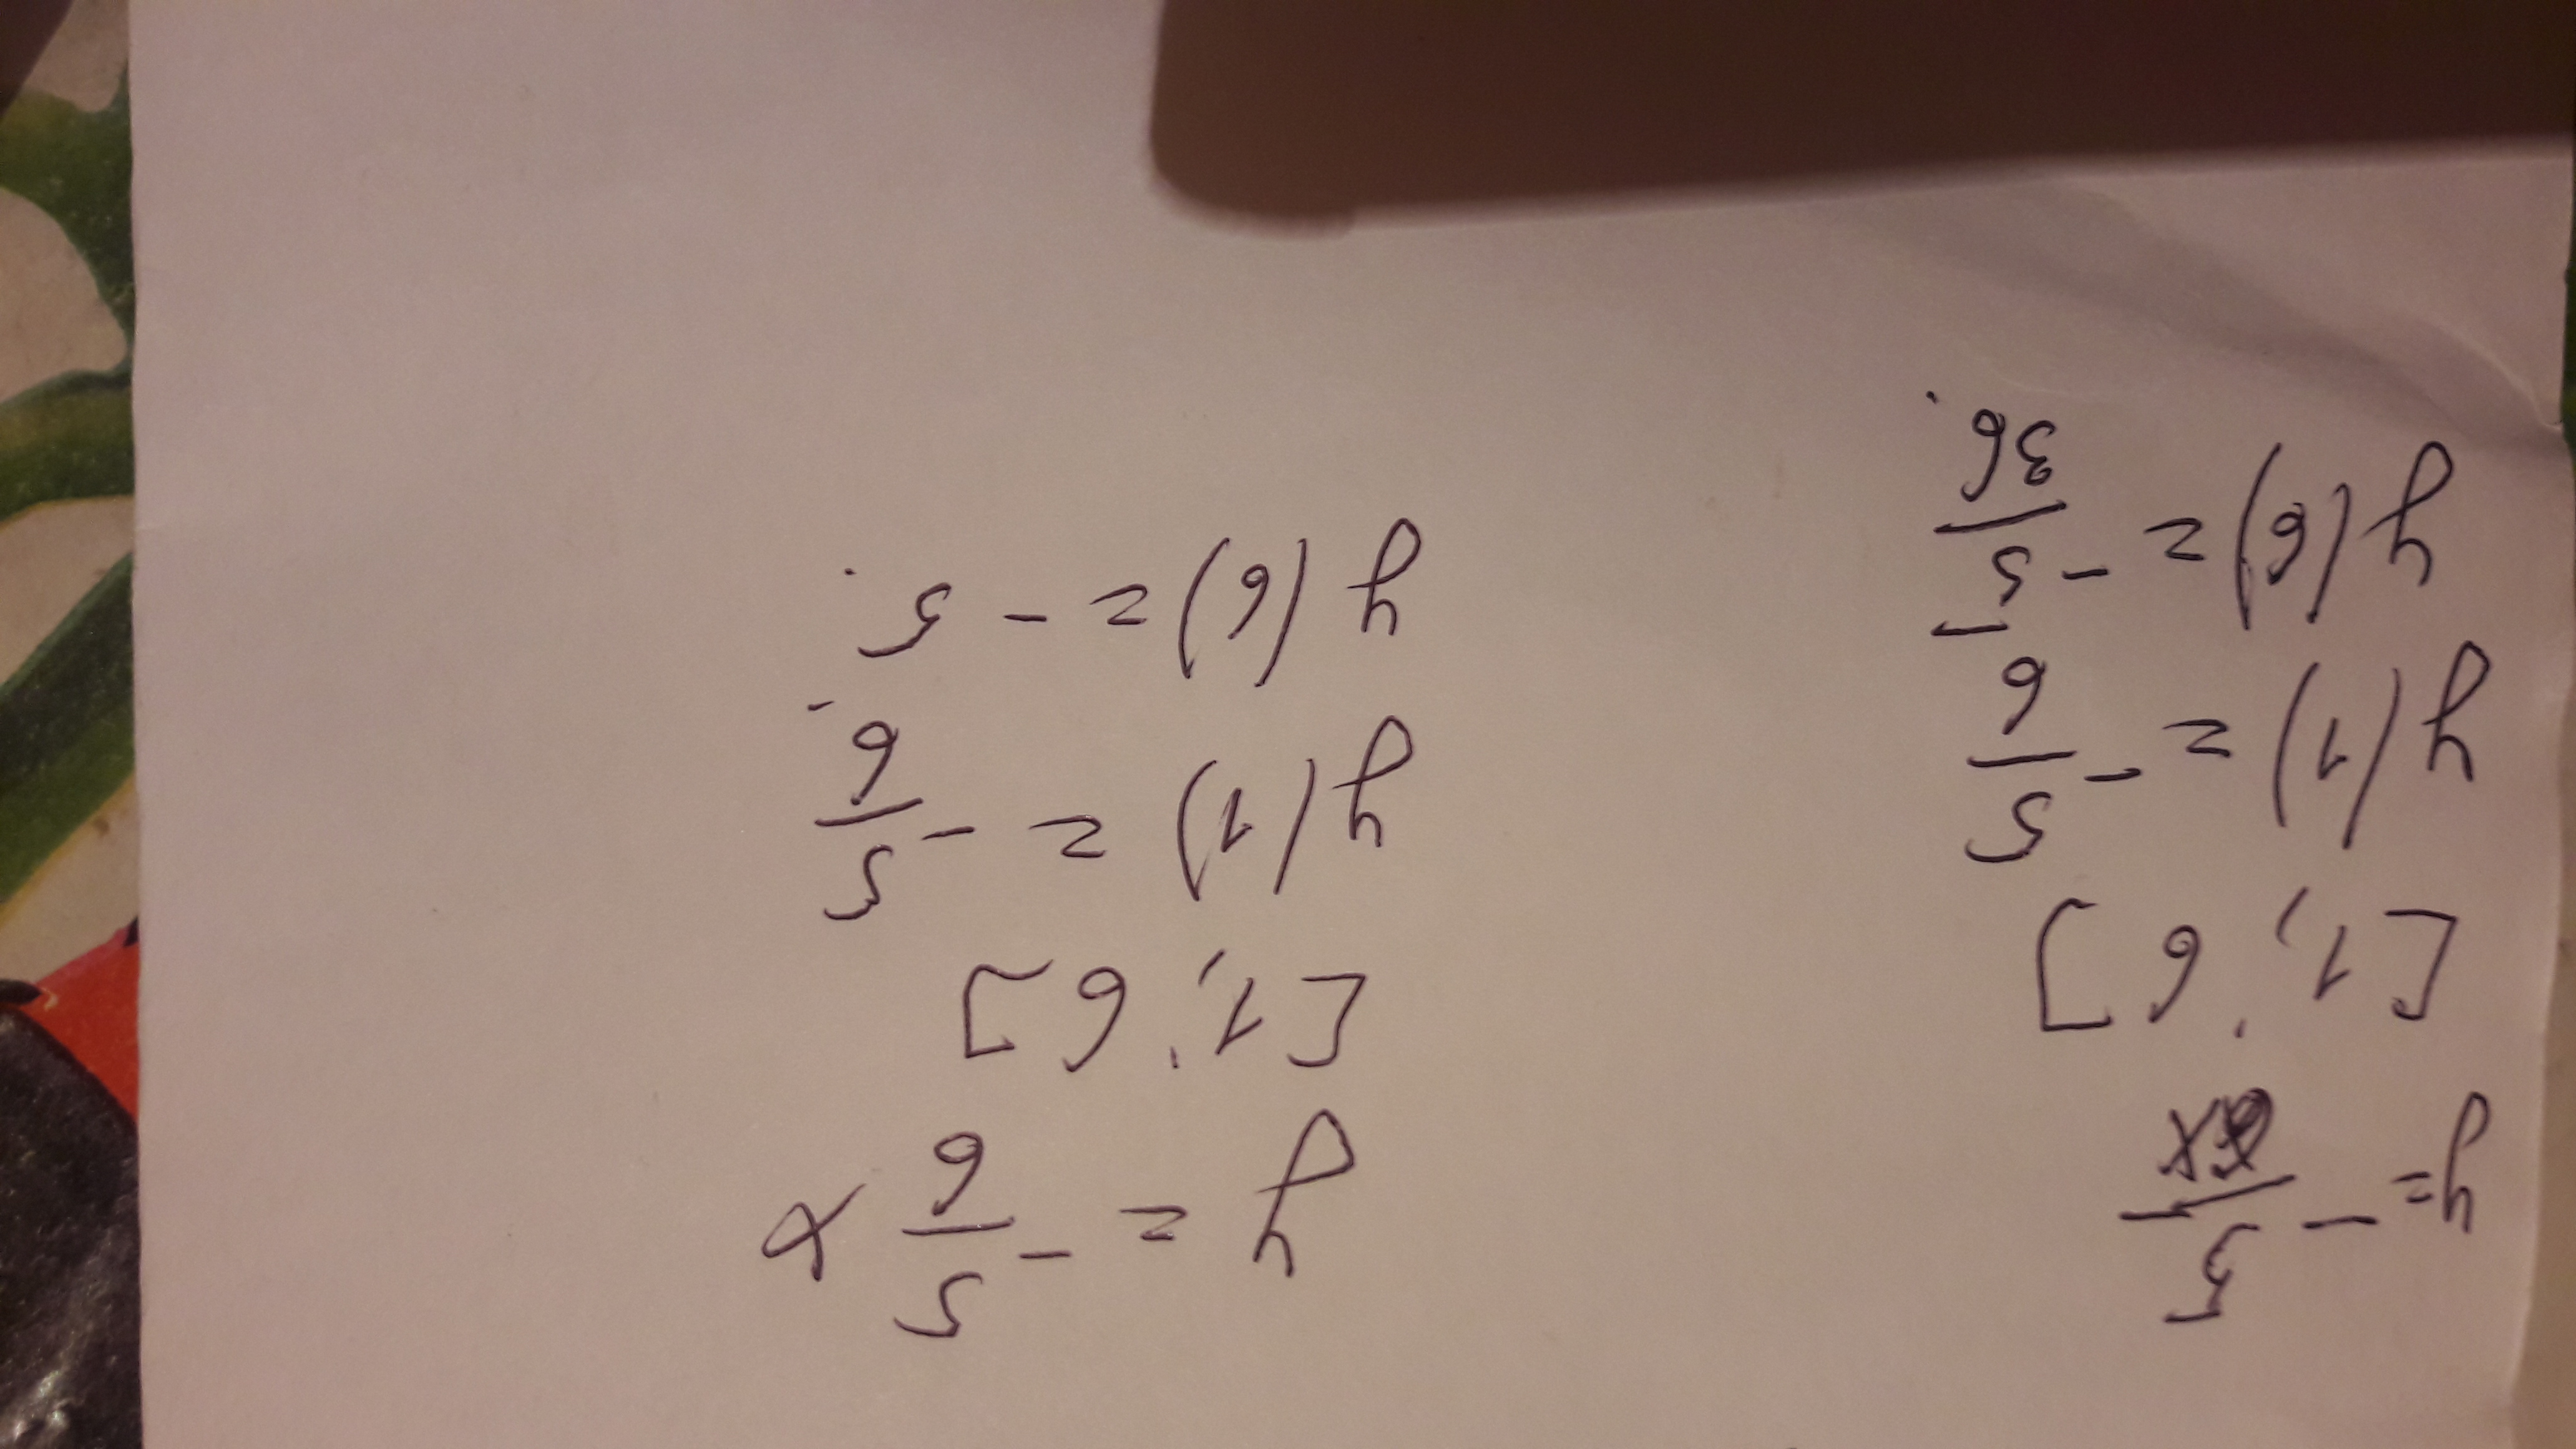 y = - 5/6x
[1; 6]
y(1) = - 5/6
y(6) = - 5/36.
y = - 5/6 x
[1; 6]
y(1) = - 5/6.
y(6) = - 5.